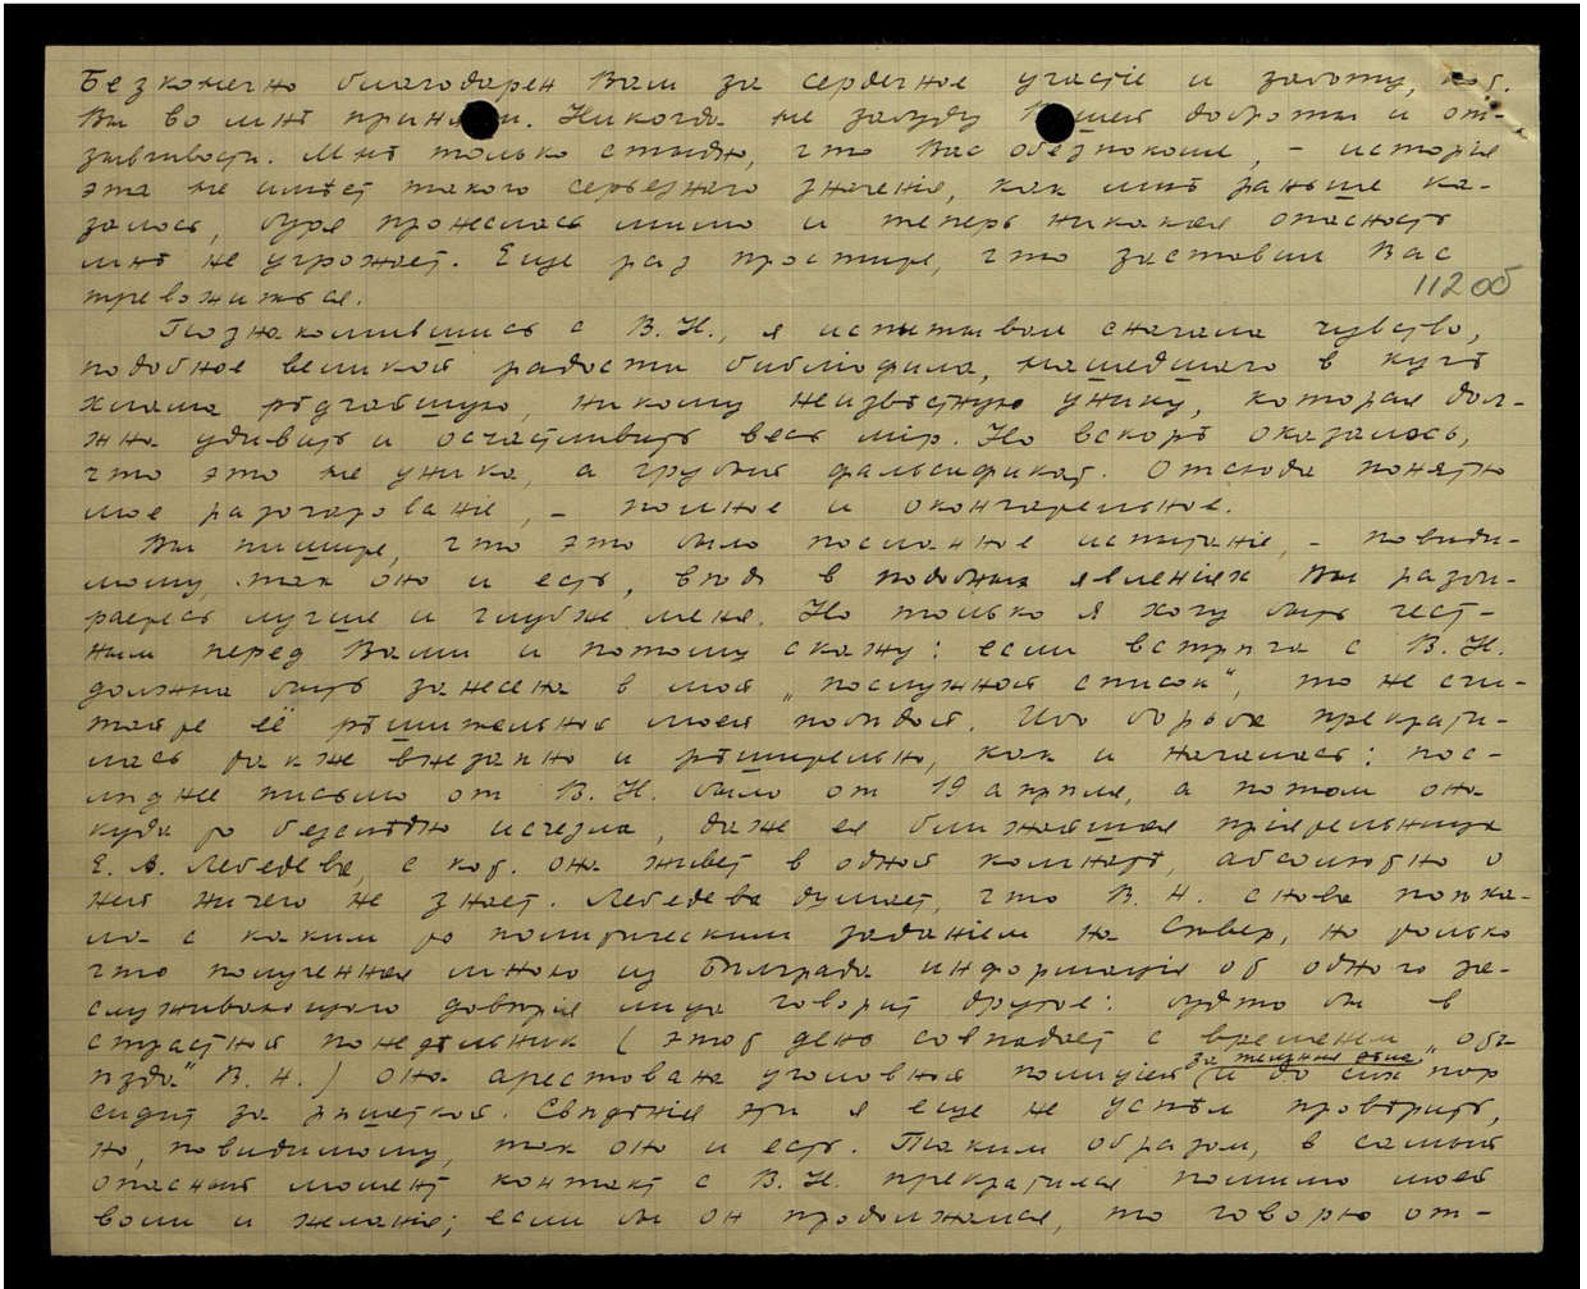 Безконечно благодарен Вам за сердечное участіе и заботу, кот.
Вы во мнѣ приняли. Никогда не забуду Вашей доброты и от-
зывчивости. Мнѣ только стыдно, что Вас обезпокоил, – исторія
эта не имѣет такого серьезнаго значенія, как мнѣ раньше ка-
залось, буря пронеслась мимо и теперь никакая опасность
мнѣ не угрожает. Еще раз простите, что заставил Вас
112 об
тревожиться.
Познакомившись с В. Н., я испытывал сначала чувство,
подобное великой радости библіофила, нашедшаго в кучѣ
хлама рѣдчайшую, никому неизвѣстную унику, которая дол-
жна удивить и осчастливить весь мір. Но вскорѣ оказалось,
что это не уника, а грубый фальсификат. Отсюда понятно
мое разочарованіе, – полное и окончательное.
Вы пишите, что это было посланное испытаніе, – повиди-
мому, так оно и есть, вѣдь в подобных явленіях Вы разби-
раетесь лучше и глубже меня. Но только я хочу быть чест-
ным перед Вами и потому скажу: если встрѣча с В. Н.
должна быть занесена в мой „послужной список“, то не счи-
тайте её рѣшительной моей побѣдой. Ибо борьба прекрати-
лась также внезапно и рѣшительно, как и началась: пос-
лѣднее письмо от В. Н. было от 19 апрѣля, а потом она
куда то безслѣдно исчезла, даже ея ближайшая пріятельница
Е. А. Лебедева, с кот. она живет в одной комнатѣ, абсолютно о
ней ничего не знает. Лебедева думает, что В. Н. снова поѣха-
ла с каким то политическим заданіем на Сѣвер, но только
что полученная мною из Бѣлграда информація об одного за-
служивающаго довѣрія лица говорит другое: будто бы в
страстной понедѣльник (этот день совпадает с временем „отъ-
ѣзда“ В. Н.) она арестована уголовной полиціей за темныя дѣла (и до сих пор
сидит за рѣшеткой. Свѣдѣнія эти я еще не успѣл провѣрить,
но, повидимому, так оно и есть. Таким образом, в самый
опасный момент контакт с В. Н. прекратился помимо моей
воли и желанія; если бы он продолжался, то говорю от-